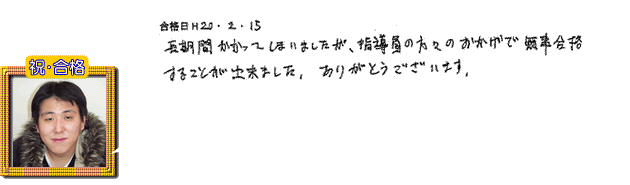 合格日H20.2.15
長期間かかってしまいましたが、指導員の方々のおかげで無事合格
することが出来ました。ありがとうございます。
祝・合格